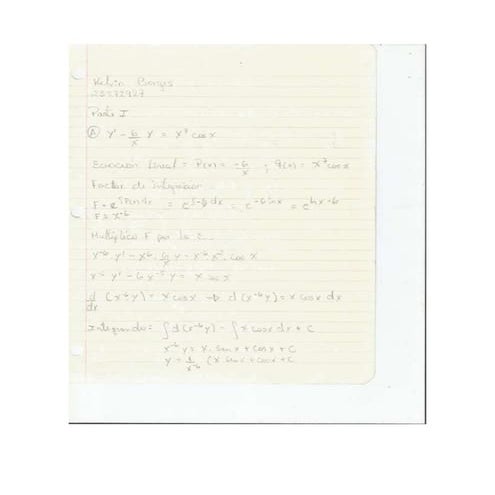 Kelvin Borges
25572927
Parte I
Ⓐ y' - 6/x y = x⁷ cos x
Ecuación Lineal = P(x) = -6/x ; q(x) = x⁷ cos x
Factor de Integración
F = e^∫P(x)dx = e^∫-6/x dx = e^-6 ln x = e^ln x-6
F = x⁻⁶
Multiplico F por la
x⁻⁶ y' - x⁻⁶ 6/x y = x⁻⁶ x⁷ cos x
y' - 6x⁻⁵ y = x cos x
d/dx (x⁻⁶y) = x cos x → d(x⁻⁶y) = x cos x dx
Integrando = ∫d(x⁻⁶y) = ∫x cos x dx + C
x⁻⁶ y = x. sen x + cos x + C
y = 1/x⁻⁶ (x sen x + cos x + C